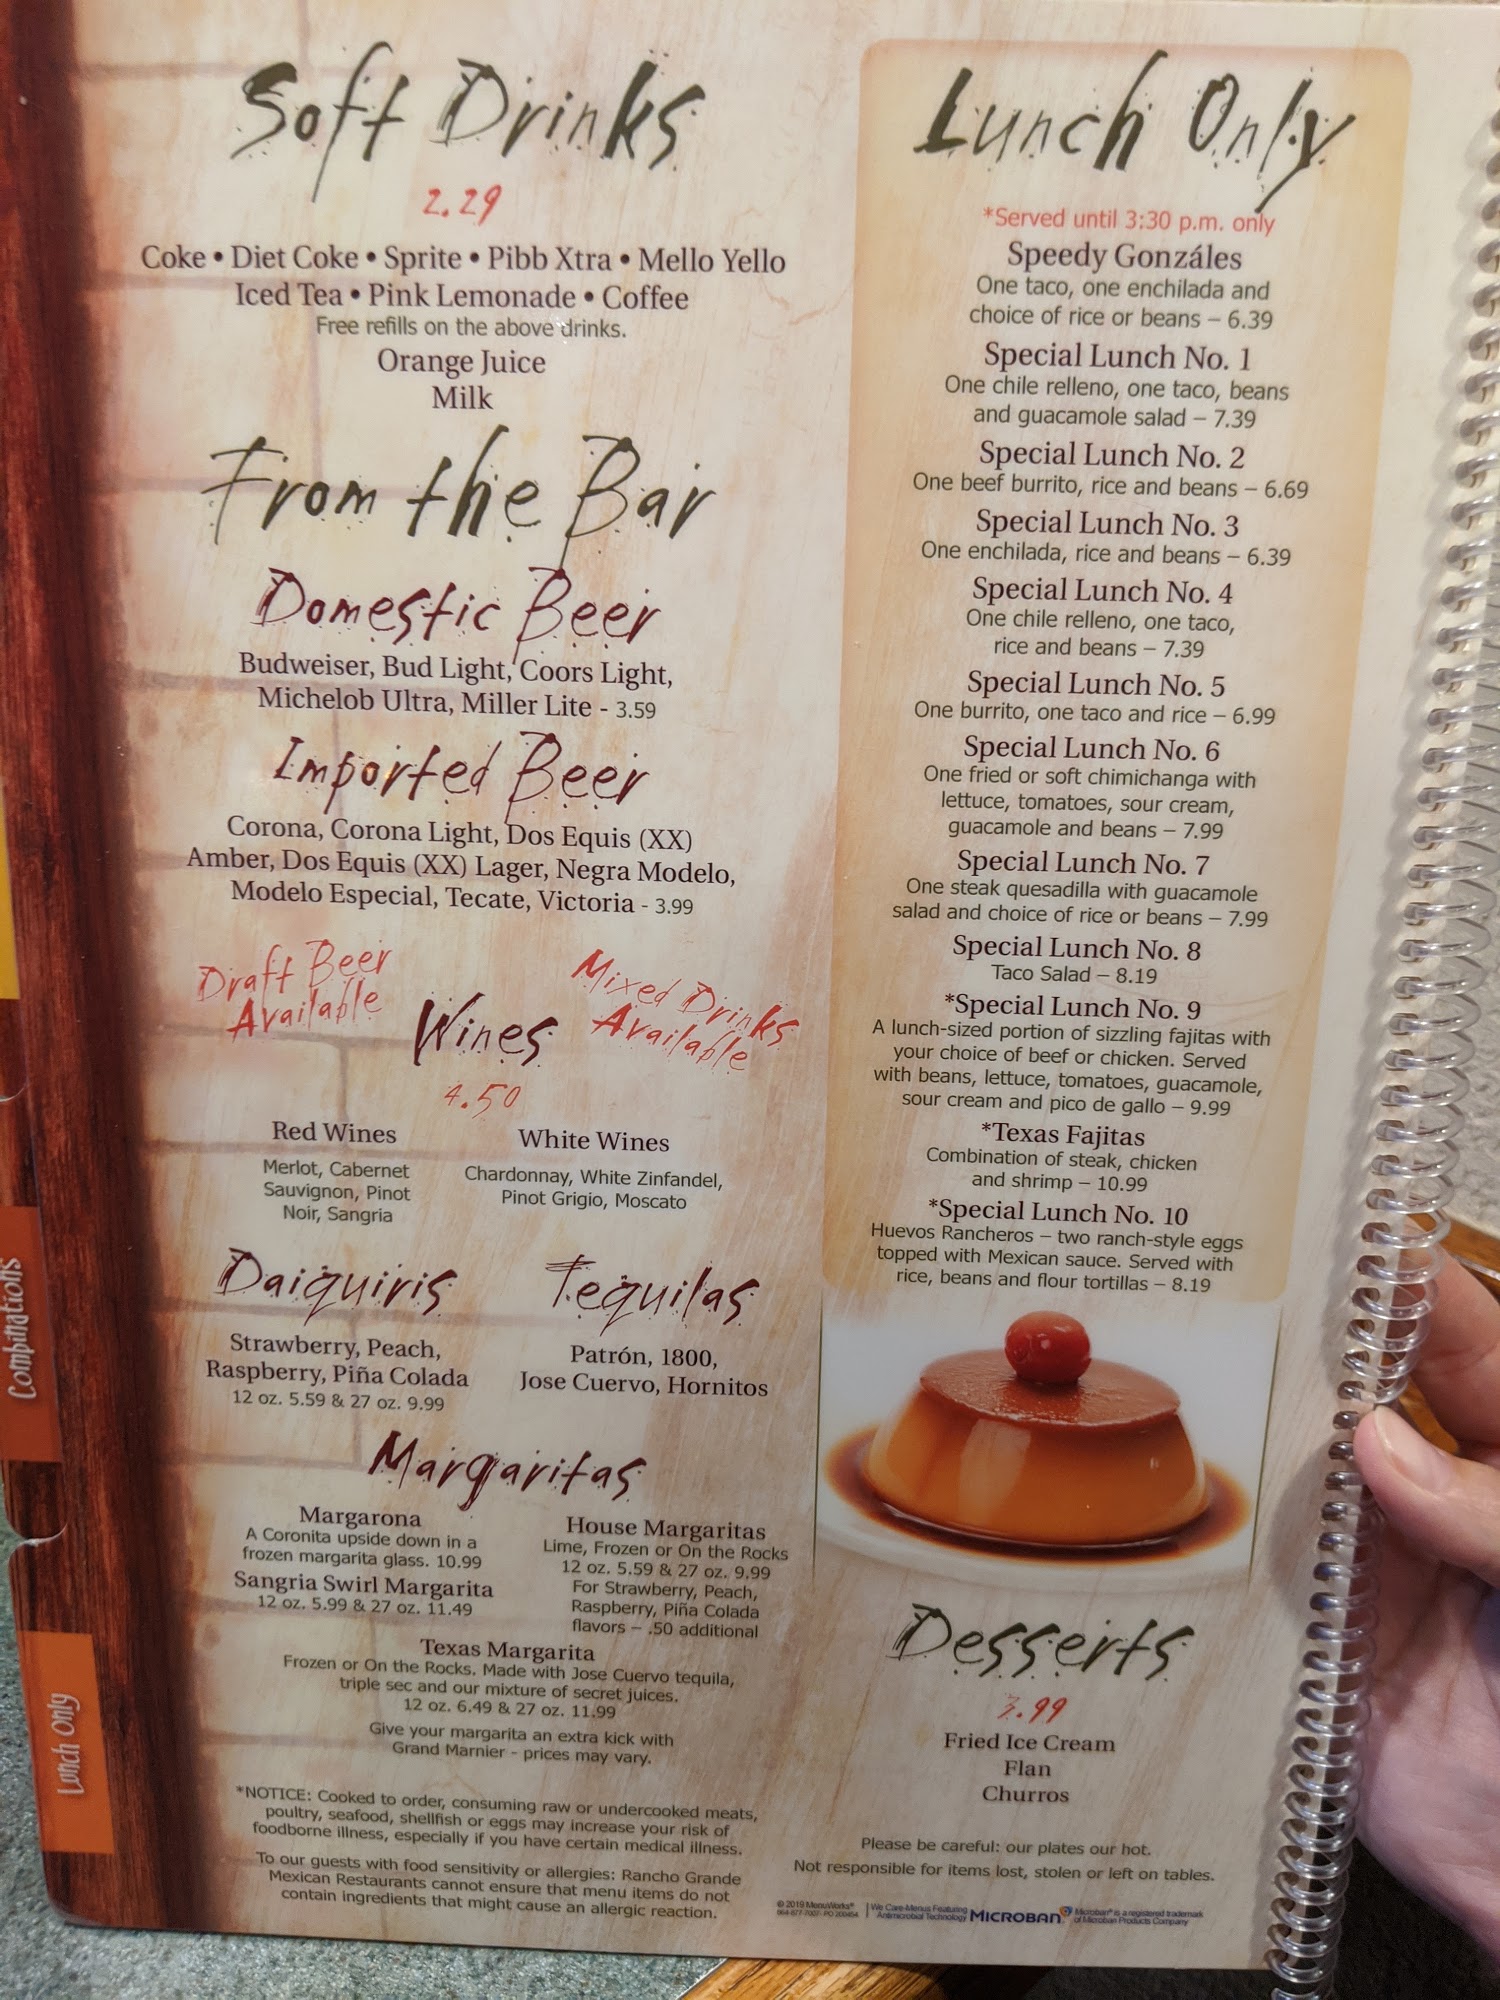 Soft Drinks
2.29
Coke • Diet Coke • Sprite • Pibb Xtra • Mello Yello
Iced Tea • Pink Lemonade • Coffee
Free refills on the above drinks.
Orange Juice
Milk
From the Bar
Domestic Beer
Budweiser, Bud Light, Coors Light,
Michelob Ultra, Miller Lite - 3.59
Imported Beer
Corona, Corona Light, Dos Equis (XX)
Amber, Dos Equis (XX) Lager, Negra Modelo,
Modelo Especial, Tecate, Victoria - 3.99
Draft Beer
Available
Wines
Mixed Drinks
Available
4.50
Red Wines
Merlot, Cabernet
Sauvignon, Pinot
Noir, Sangria
White Wines
Chardonnay, White Zinfandel,
Pinot Grigio, Moscato
Daiquiris
Strawberry, Peach,
Raspberry, Piña Colada
12 oz. 5.59 & 27 oz. 9.99
Tequilas
Patrón, 1800,
Jose Cuervo, Hornitos
Margaritas
Margarona
A Coronita upside down in a
frozen margarita glass. 10.99
Sangria Swirl Margarita
12 oz. 5.99 & 27 oz. 11.49
House Margaritas
Lime, Frozen or On the Rocks
12 oz. 5.59 & 27 oz. 9.99
For Strawberry, Peach,
Raspberry, Piña Colada
flavors – .50 additional
Texas Margarita
Frozen or On the Rocks. Made with Jose Cuervo tequila,
triple sec and our mixture of secret juices.
12 oz. 6.49 & 27 oz. 11.99
Give your margarita an extra kick with
Grand Marnier - prices may vary.
*NOTICE: Cooked to order, consuming raw or undercooked meats,
poultry, seafood, shellfish or eggs may increase your risk of
foodborne illness, especially if you have certain medical illness.
To our guests with food sensitivity or allergies: Rancho Grande
Mexican Restaurants cannot ensure that menu items do not
contain ingredients that might cause an allergic reaction.
Lunch Only
*Served until 3:30 p.m. only
Speedy Gonzáles
One taco, one enchilada and
choice of rice or beans – 6.39
Special Lunch No. 1
One chile relleno, one taco, beans
and guacamole salad – 7.39
Special Lunch No. 2
One beef burrito, rice and beans – 6.69
Special Lunch No. 3
One enchilada, rice and beans – 6.39
Special Lunch No. 4
One chile relleno, one taco,
rice and beans – 7.39
Special Lunch No. 5
One burrito, one taco and rice – 6.99
Special Lunch No. 6
One fried or soft chimichanga with
lettuce, tomatoes, sour cream,
guacamole and beans – 7.99
Special Lunch No. 7
One steak quesadilla with guacamole
salad and choice of rice or beans – 7.99
Special Lunch No. 8
Taco Salad – 8.19
*Special Lunch No. 9
A lunch-sized portion of sizzling fajitas with
your choice of beef or chicken. Served
with beans, lettuce, tomatoes, guacamole,
sour cream and pico de gallo – 9.99
*Texas Fajitas
Combination of steak, chicken
and shrimp – 10.99
*Special Lunch No. 10
Huevos Rancheros – two ranch-style eggs
topped with Mexican sauce. Served with
rice, beans and flour tortillas – 8.19
Desserts
3.99
Fried Ice Cream
Flan
Churros
Please be careful: our plates our hot.
Not responsible for items lost, stolen or left on tables.
© 2019 MenuWorks®
We Care-Menus Featuring
Antimicrobial Technology
MICROBAN
Microban® is a registered trademark
of Microban Products Company
Combinations
Lunch Only